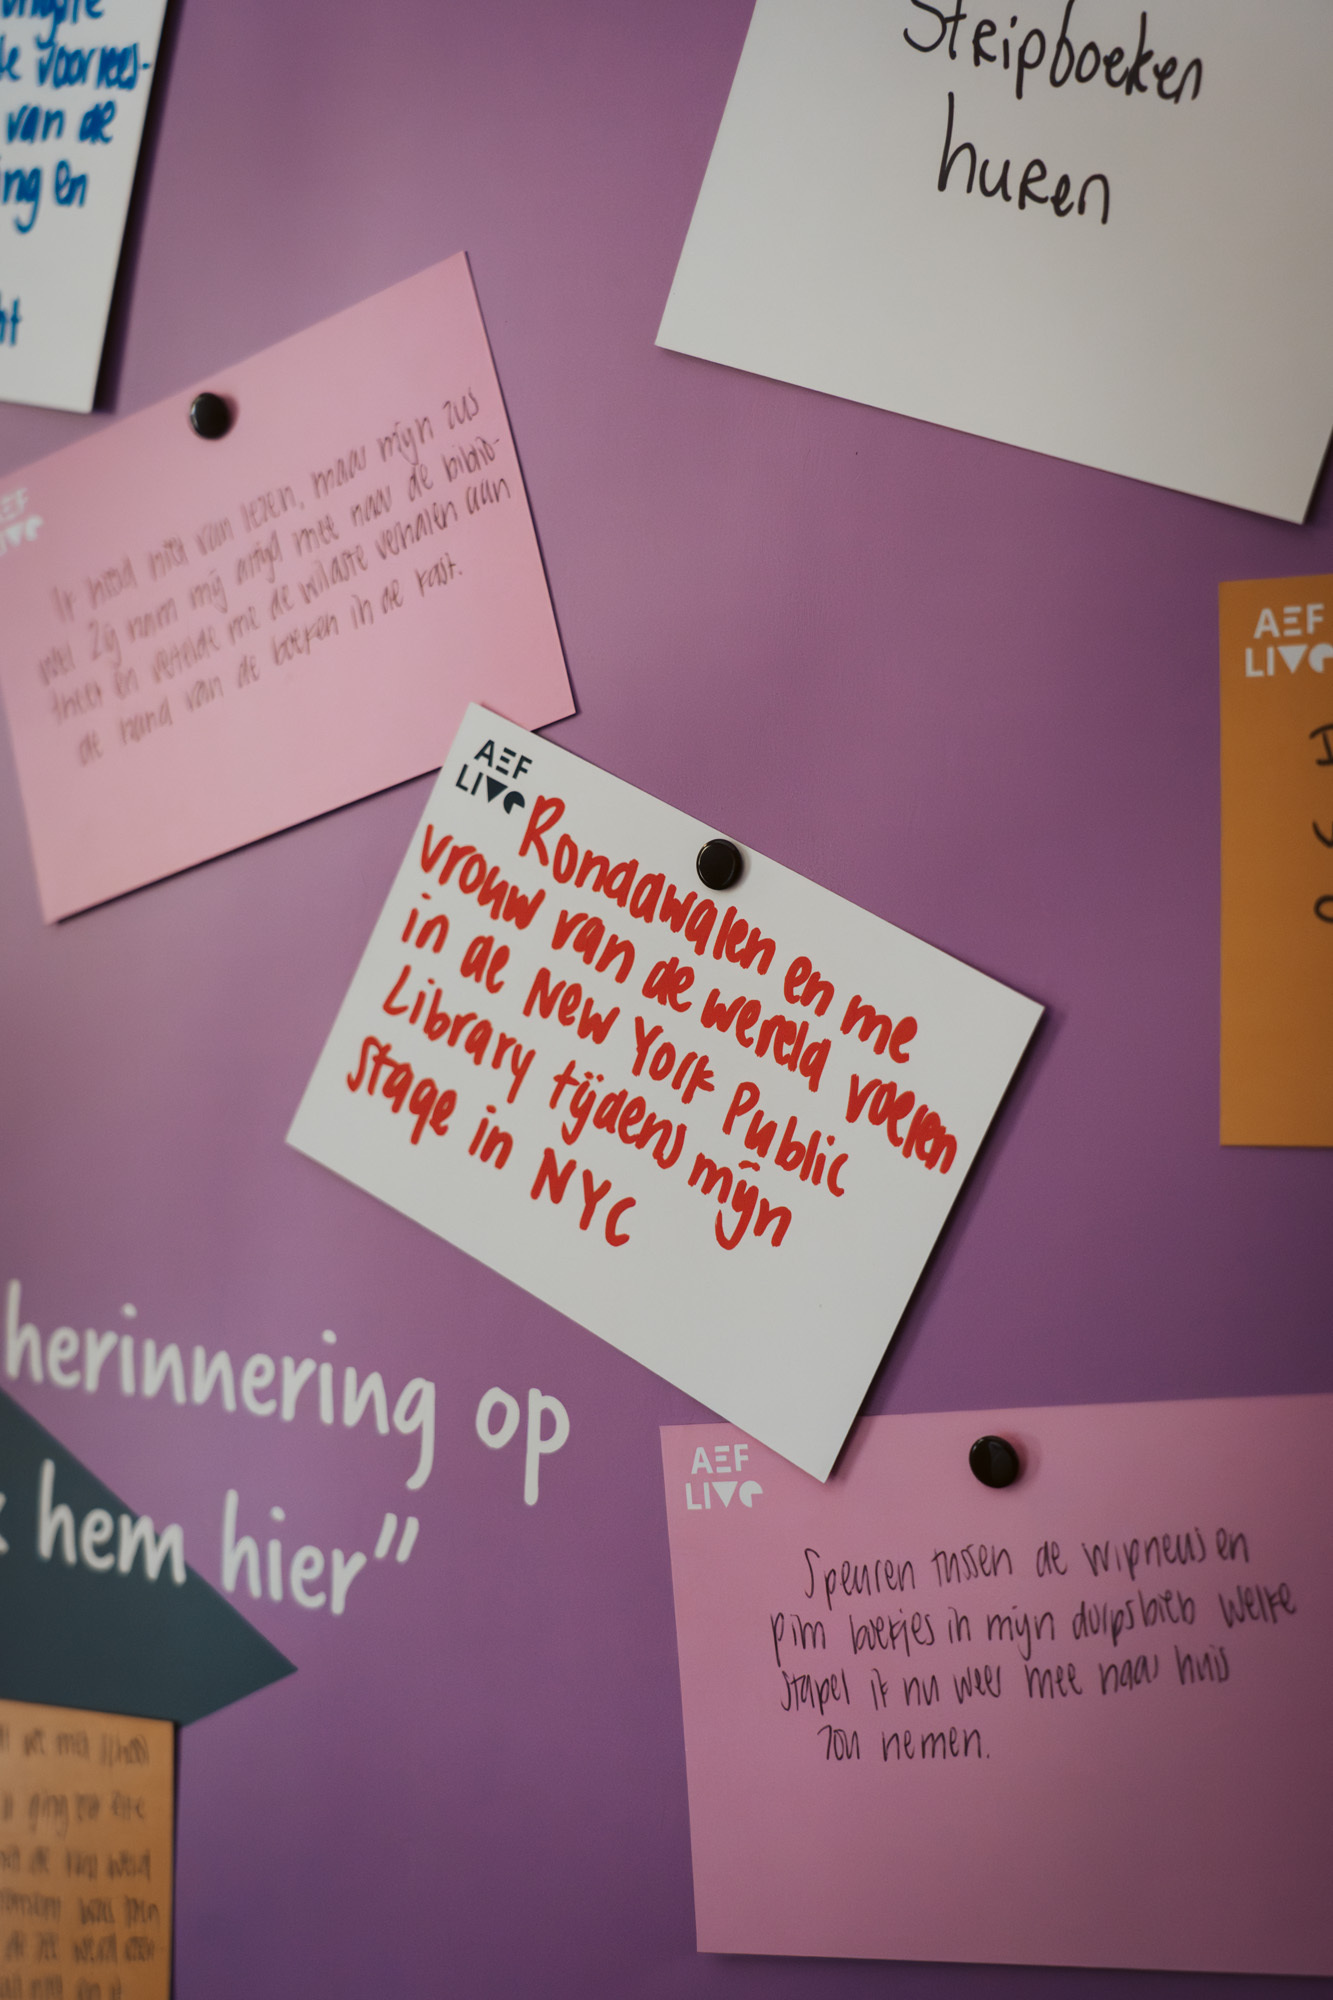 voorlees-
van de
ing en
Stripboeken
huren
AEF
LIVE
Ik hield niet van lezen, maar mijn zus
wel. Zij nam mij altijd mee naar de biblio-
theek en vertelde me de wildste verhalen aan
de hand van de boeken in de kast.
AEF
LIVE
Rondawalen en me
vrouw van de wereld voelen
in de New York Public
Library tijdens mijn
stage in NYC
AEF
LIVE
herinnering op
hem hier”
AEF
LIVE
Speuren tussen de wipneus en
pim boekjes in mijn dorpsbieb welke
stapel ik nu weer mee naar huis
zou nemen.